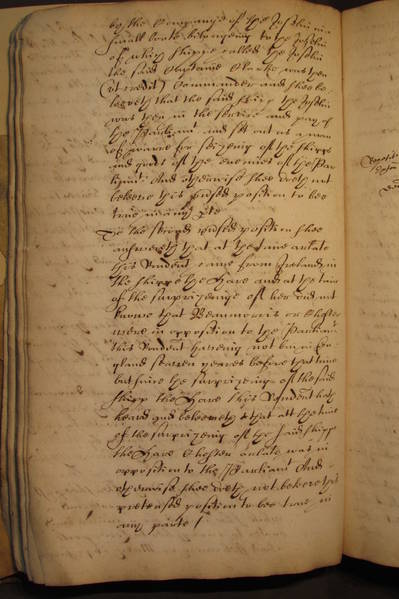 by the Companye of the Jesselin in a
small boate belongeing to the Jesselin
of which shippe called the Jesselin
the said Captaine Clarke was then
(ut credit) Commander and shee be
leeveth that the said shipp the Jesselin
was then in the service and pay of
the Parliament and sett out as a man
of warre for seizeing of the shipps
and goods of the enemies of the Par
liament And otherwise shee doth not
beleeve this pnsed position to bee
true in any pte
To the second pnsed position shee
answereth that at the time arlate
this Rendent came from Ireland in
the shippe the Hare and at the time
of the surprizeinge of her did not
knowe that Beaumorris or Chester
were in opposition to the Parliament
this Rendent haveing not bin in En
gland seaven yeares before that time
but since the surprizeinge of the said
shipp the Hare this Rendent hath
heard and beleeveth that att the time
of the surprizeing of the said shipp
the Hare Chester arlate was in
opposition to the Parliament And
otherwise shee doth not beleeve this
pretensed position to bee true in
any parte /